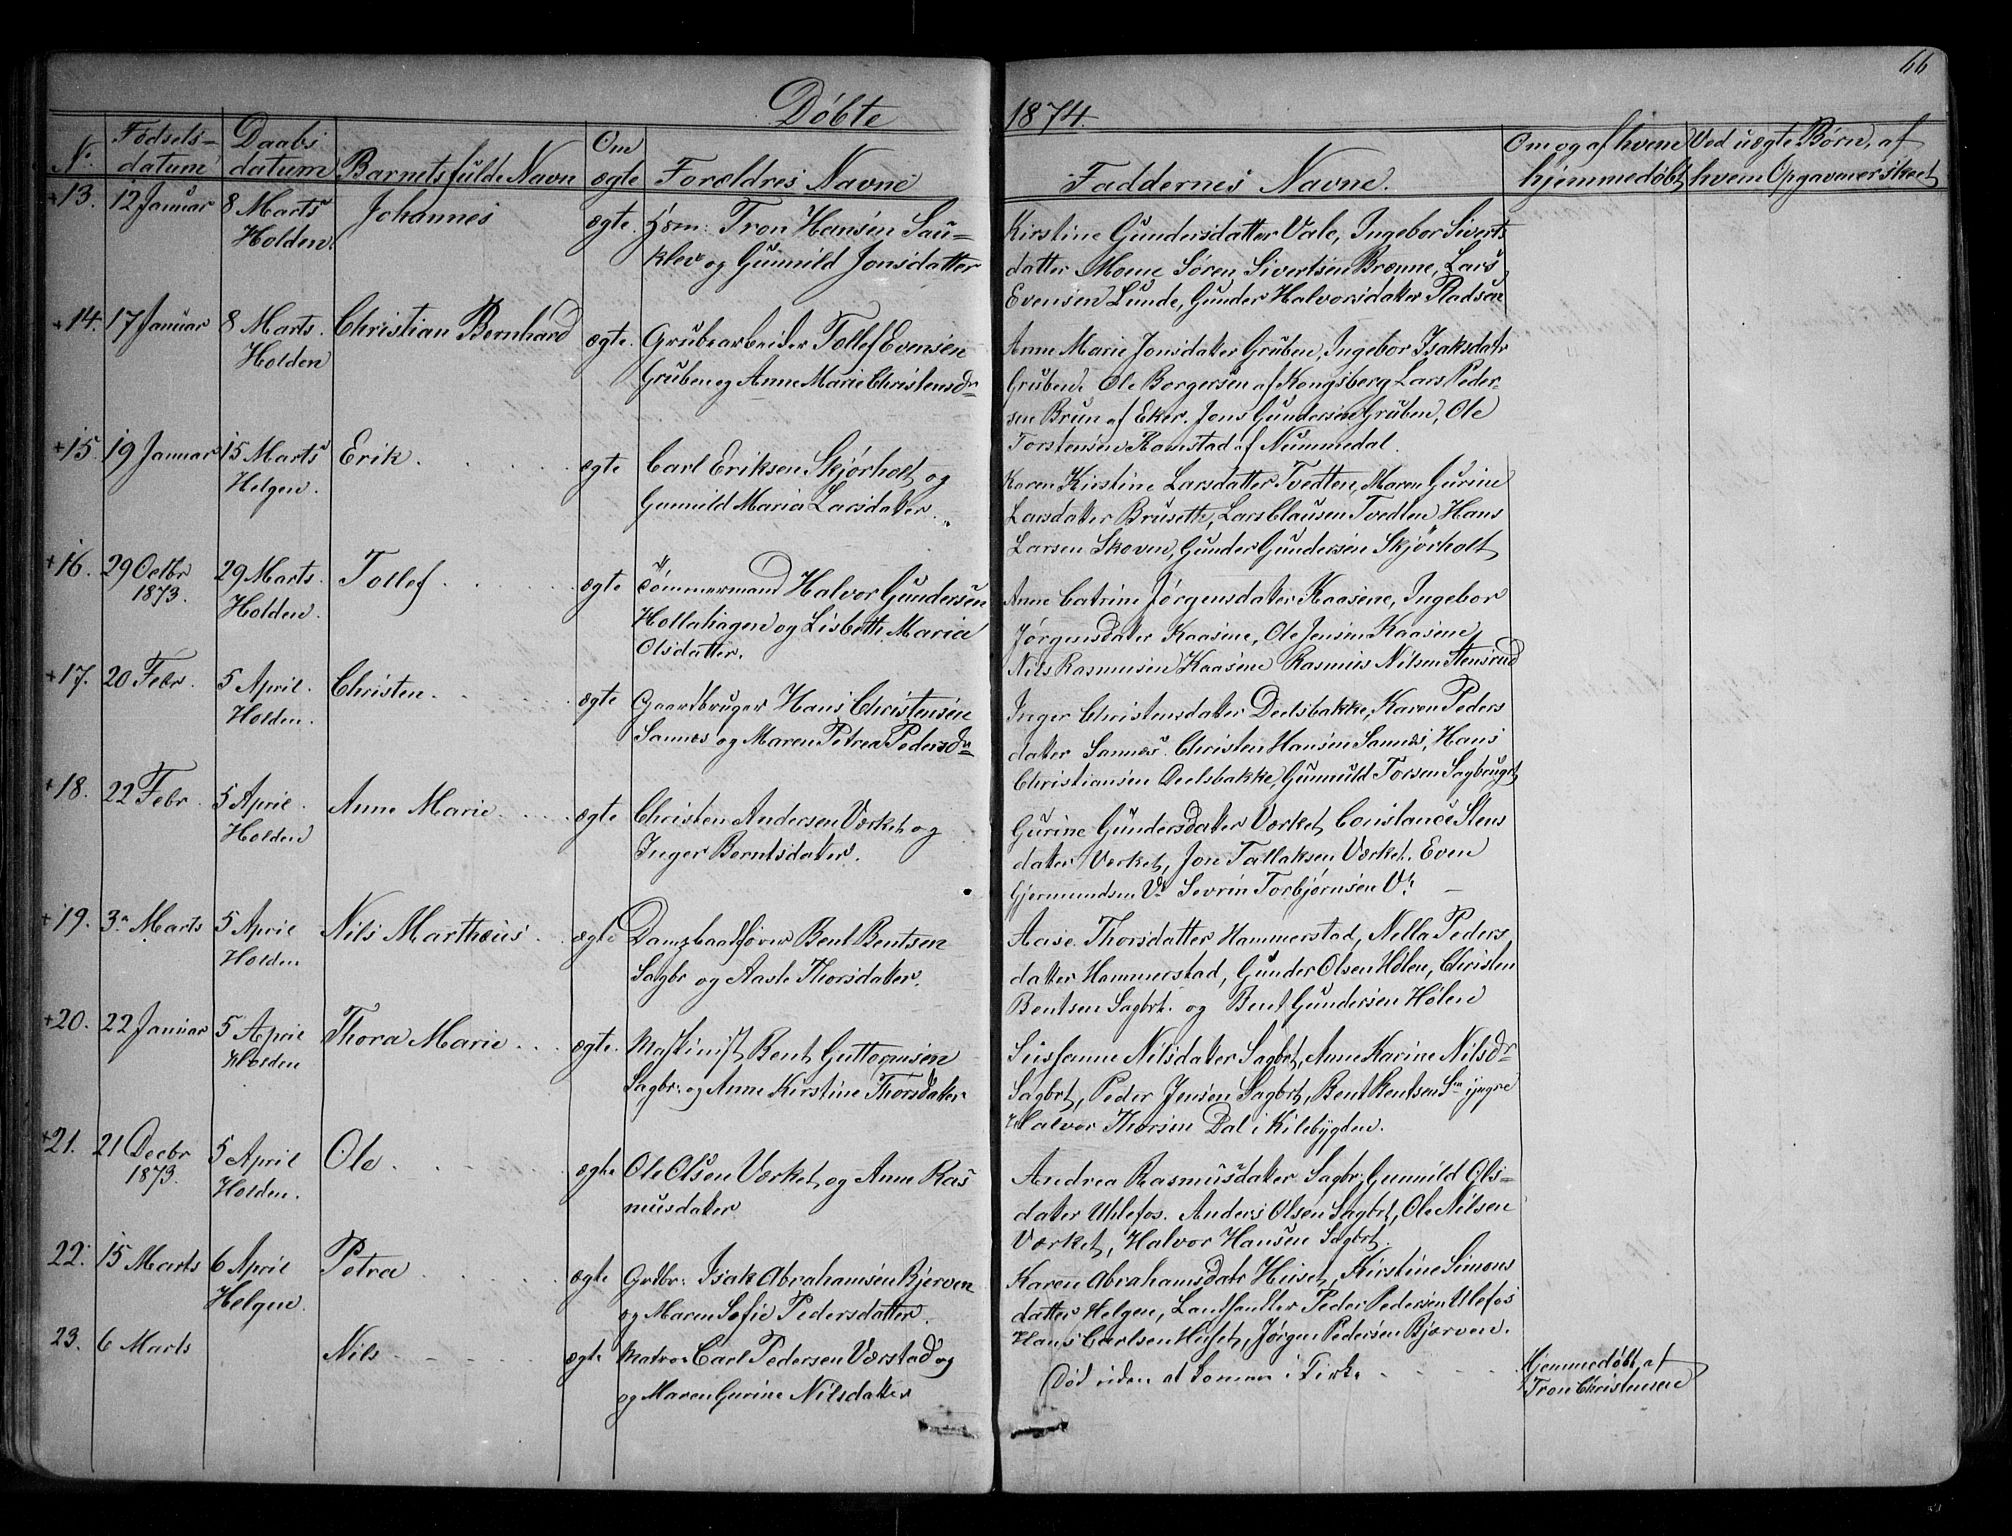 66
Døbte 1874.
No Fødsels-datum Daabsdatum Barnets fulde Navn Om ægte Forældres Navne Faddernes Navne. Om og af hvem hjemmedøbt Ved uægte Børn, af hvem Opgaven er skeet
+13. 12 Januar 8 Marts Holden. Johannes ægte.
Tron Hansen Sau=
klev og Gunnild Jonsdatter
Kirstine Gundersdatter Vale, Ingebor Siverts
datter Moene Søren Sivertsen Brenne, Lars
Evensen Lunde, Gunder Halvorsdater Pladsen
+14. 17 Januar 8 Marts. Holden Christian Bernhard ægte.
Grubearbeider Tollef Evensen
Gruben og Anne Marie Christensdr
Anne Marie Jonsdater Gruben, Ingebor Isaksdatr
Gruben. Ole Borgersen af Kongsberg Lars Peder-
sen Brun af Eker. Jons Gundersen Gruben, Ole
Torstensen Ramstad af Nummedal.
+15. 19 Januar 15 Marts Helgen. Erik. ægte
Carl Eriksen Skjørholt og
Gunnild Maria Larsdater.
Karen Kirstine Larsdatter Tvedten, Maren Gurine
Larsdater Brusette, Lars Clausen Tvedten Hans
Larsen Skoven, Gunder Gundersen Skjørholt
+16. 29 Octbr 1873. 29 Marts. Holden. Tollef. ægte
Tømmermand Halvor Gundersen
Hollahagen og Lisbeth Marie
Olsdatter.
Anne Catrine Jørgensdater Kaasene, Ingebor
Jørgensdater Kaasene, Ole Jensen Kaasene
Nils Rasmusen Kaasene Rasmus Nilsen Stensrud
+17. 20 Febr. 5 April. Holden. Christen. ægte
Gaardbruger Hans Christensen
Sannes og Maren Petrea Pedersdr
Inger Christensdater Deelsbakke, Karen Peders
dater Sannes. Christen Hansen Sannes, Hans
Christiansen Deelsbakke, Gunnuld Torsen Sagbruget
+18. 22 Febr. 5 April. Holden Anne Marie. ægte
Christen Andersen Værket og
Inger Berntsdater.
Gurine Gundersdater Værket, Constance Stens
dater Værket, Jon Tallaksen Værket. Even
Gjermundsen Vt Sevrin Torbjørnsen Vt. —
+19. 3. Marts 5 April Holden Nils Martheus. ægte
Dampbaadfører Bent Bentsen
Sagbr og Aaste Thorsdater.
Aase Thorsdatter Hammerstad, Nella Peders
datter Hammerstad, Gunder Olsen Holen, Christen
Bentsen Sagbrt. og Bent Gundersen Holen
+20. 22 Januar 5 April Holden Thora Marie. ægte.
Maskinist Bent Guttormsen
Sagbr: og Anne Kirstine Thorsdater
Susanne Nilsdater Sagbrt, Anne Karine Nilsdr
Sagbrt, Peder Jensen Sagbrt, Bent Bentsen Sa yngre
Halvor Thorsen Dal i Kilebygden.
+21. 21 Decbr 1873. 5 April Holden. Ole. ægte
Ole Olsen Værket og Anne Ras
musdater
Andrea Rasmusdater Sagbr, Gunnild Ols=
dater Uhlefos. Anders Olsen Sagbrt, Ole Nilsen
Værket, Halvor Hansen Sagbrt.
22. 15 Marts 6 April Helgen. Petra ægte
Grdbr: Isak Abrahamsen Bjerven
og Maren Sofie Pedersdatter.
Karen Abrahamsdatr Huset, Kirstine Simons
datter Helgen, Landhandler Peder Pedersen Ulefos
Hans Carlsen Huset, Jørgen Pedersen Bjerven.
23. 6 Marts Nils ægte
Matros Carl Pedersen Værstad og
og Maren Gurine Nilsdater
Død uden at komme i Kirke
Hjemmedøbt af
Tron Christensen